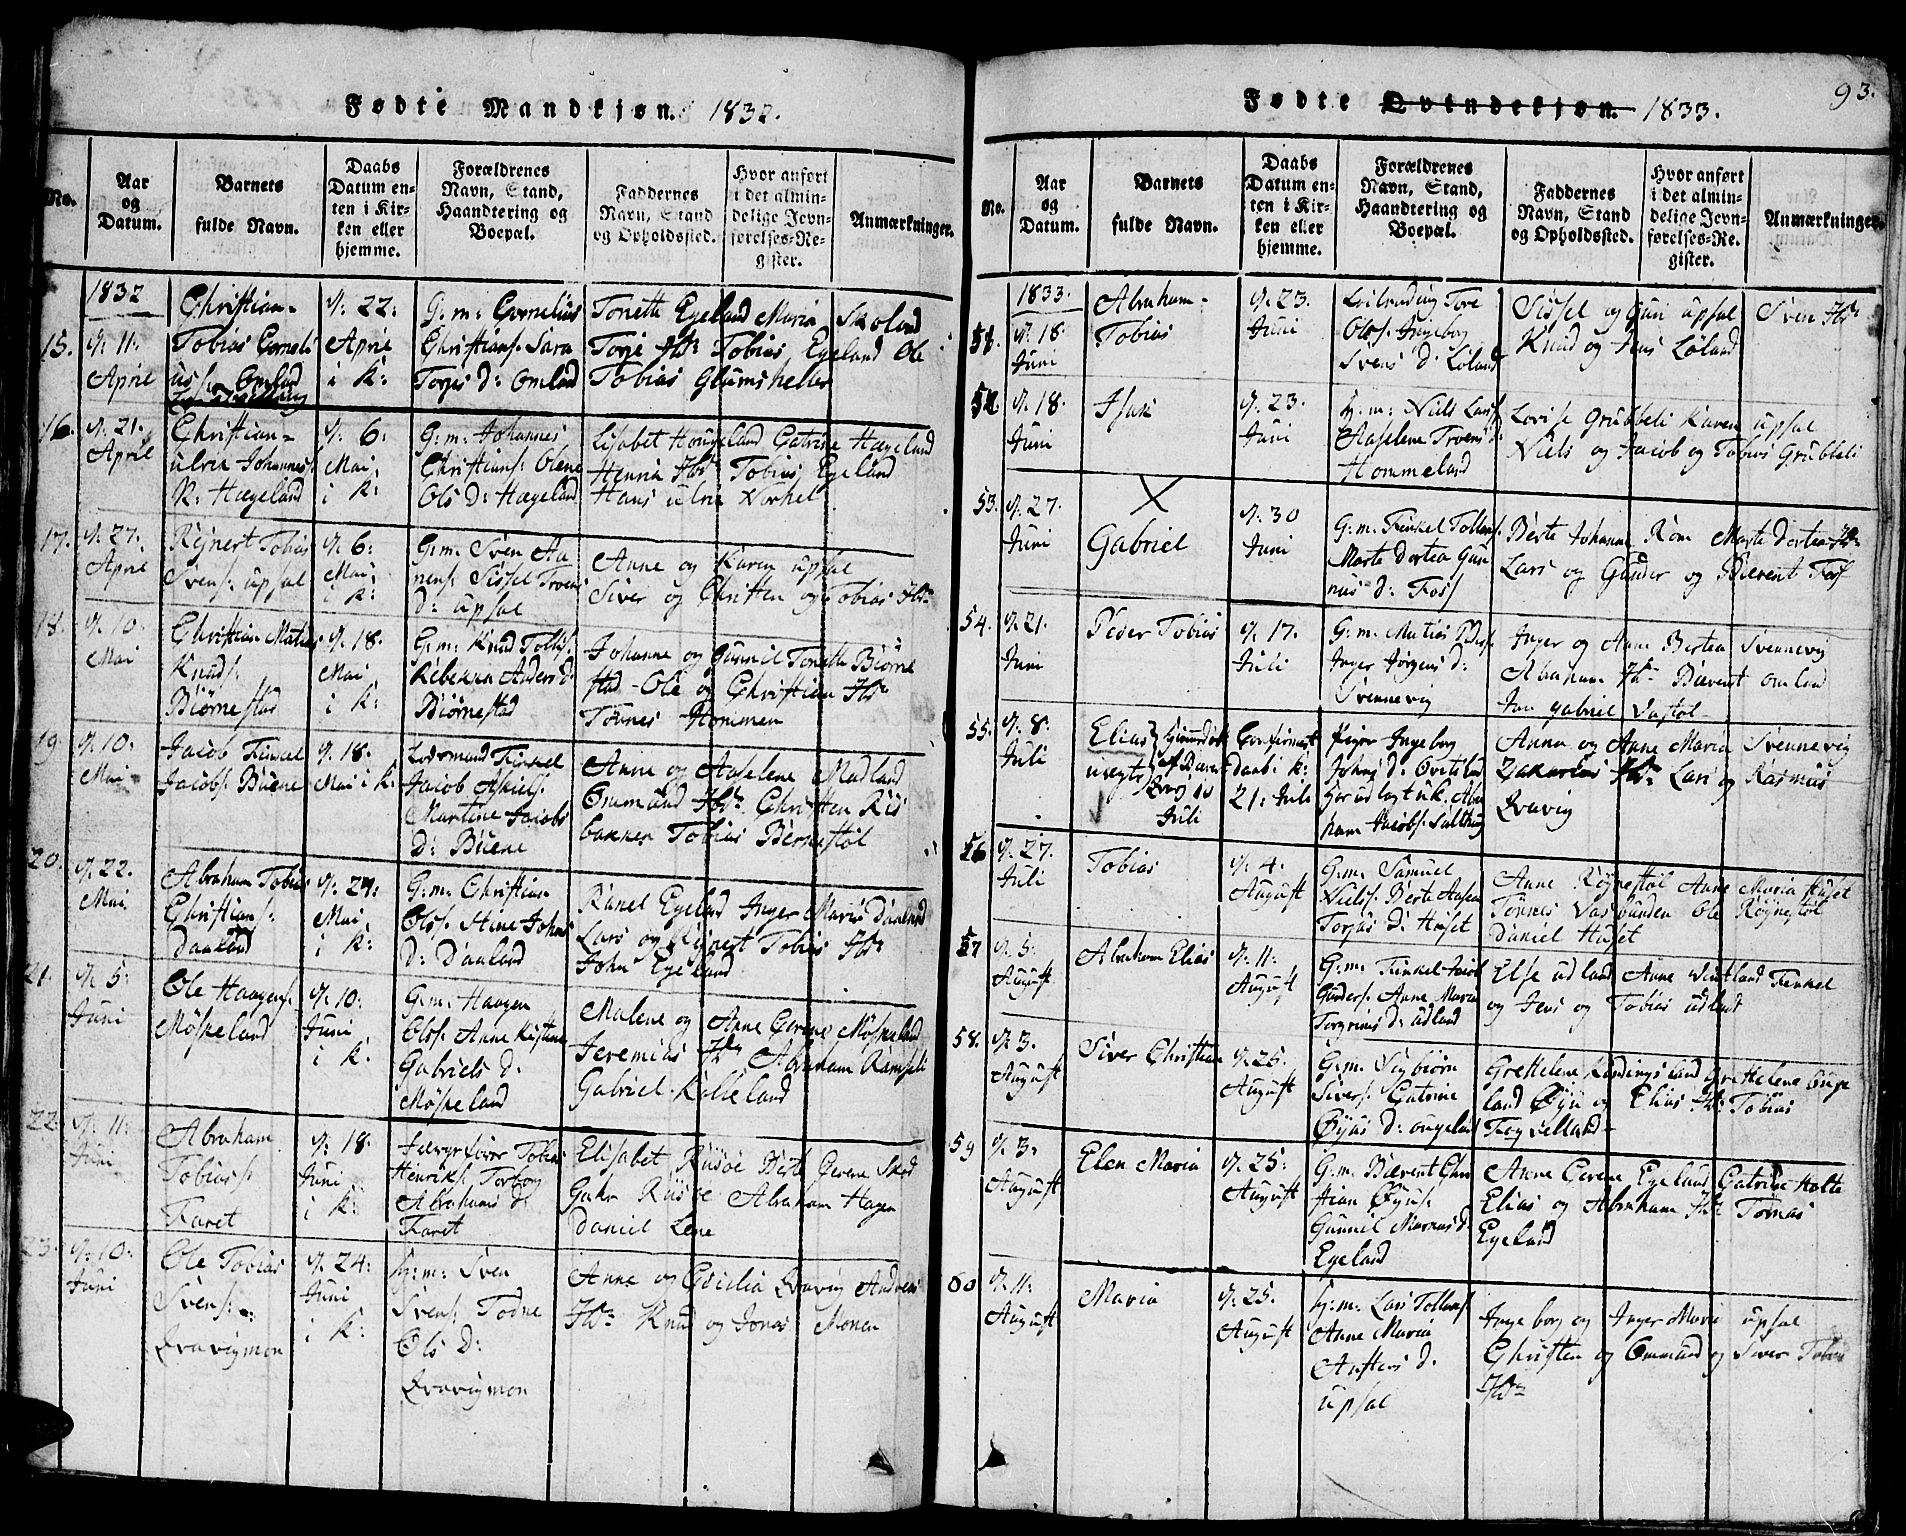 Fødte Mandkjøn. 1832.
No.
Aar
og
Datum.
Barnets
fulde Navn.
Daabs
Datum en-
ten i Kir-
ken eller
hjemme.
Forældrenes
Navn, Stand,
Haandtering og
Boepæl.
Faddernes
Navn, Stand
og Opholdssted.
Hvor anført
i det almin-
delige Jevn-
førelses-Re-
gister.
Anmærkninger.
1832
15.
d. 11.
April
Christian-
Tobias Corneli
uss. Omland
d. 22:
April
i k:
G: m: Cornelius
Christians. Sara
Torjes d: Omland
Tonette Egeland Maria Skoland
Torje Tobias Egeland Ole
Tobias Glumsheller
16.
d. 21.
April
Christian-
ulrik Johannes.
N: Hægeland
d. 6:
Mai
i k:
G: m: Johannes
Christians. Olene
Ols D: Hægeland
Lisabet Hougeland Catrine Hægeland
Henrik Tobias Egeland
Hans ulrik
17.
d. 27.
April
Rejnert Tobias
Svens. upsal
d. 6:
Mai
i k:
G: m: Sven Aa
nens. Sissel Troens
d: upsal
Anne og Karen upsal
Siver og Christen og Tobias
18.
d. 10.
Mai
Christian Matias
Knuds.
Biørnestad
d. 18:
Mai
i k:
G: m: Knud Tolls.
Rebekka Anders d
Biørnestad
Johanne og Gunnil Tonette Biørne
stad - Ole og Christian
Tønnes Hommen
19.
d. 10:
Mai
Jacob Tinkel
Jacobs. Buene
d. 18:
Mai i k:
Tinkel
Jacob Askiels.
Martine Jacobs
D: Buene
Anne og Aaselene Madland
Ommund Christen Ris
bakken Tobias Bernestøl
20.
d. 22.
Mai
Abraham Tobias
Christians.
Daaland
d. 27:
Mai
i k:
G: m: Christian
Ols. Stine Johns
D: Daaland
Ranel Egeland Inger Maria Daaland
Lars og Rejnert Tobias
John Egeland
21.
d. 5:
Juni
Ole Haagens.
Møskeland
d. 10:
Juni
i k:
G: m: Haagen
Ols. Anne Kistine
Gabriels d:
Møskeland
Malene og Anne Gerene Møskeland
Jeremias Abraham Ramseli
Gabriel Kolleland
22.
d. 11:
Juni
Abraham
Tobias.
Faret
d. 18:
Juni
i k:
Tobias
Henriks. Torborg
Abrahams d:
Faret
Elisabet Risøe Berte Gerene Skod
Abraham Hagen
Daniel Lene
23.
d. 10:
Juni
Ole Tobias
Svens.
Dravigmon
d. 24:
Juni
i k:
h: m: Sven
Svens. Todne
Ols D:
Dravigmon
Anne og Cecilia Dravig Andreas
Knud og Jonas Monen
93.
Fødte Qvindekjøn. 1833.
No.
Aar
og
Datum.
Barnets
fulde Navn.
Daabs
Datum en-
ten i Kir-
ken eller
hjemme.
Forældrenes
Navn, Stand,
Haandtering og
Boepæl.
Faddernes
Navn, Stand
og Opholdssted.
Hvor anført
i det almin-
delige Jevn-
førelses-Re-
gister.
Anmærkninger.
1833.
51.
d. 18.
Juni
Abraham-
Tobias
d. 23.
Juni
Tore
Ols. Ingeborg
Svens d: Loland
Sissel og Guri upsal Sven
Knud og Jens Løland
52.
d. 18.
Juni
Isak
d. 23.
Juni
h: m: Niels Lars.
Aaselene Troens d:
Hommeland
Lovise Grubbeli Karen upsal
Niels og Jacob og Tobias Grubbeli
53.
d. 27.
Juni
X
Gabriel
d. 30
Juni
G: m: Tinkel Tollevs.
Marte Dortea Gun
nus d: Foss
Berte Johanne Rom Marte Dortea
Lars og Gunder og Bærent Foss
54.
d. 21.
Juni
Peder Tobias
d. 17.
Juli
G: m: Matias Peders.
Inger Jørgens d:
Svennevig
Inger og Anne Bertea Svennevig
Abraham Bærent omland
Jan gabriel
55.
d. 8:
Juli
Elias
uægte
10
Juli
Confirmert
daab i k:
21: Juli
Pigen Ingeborg
Johns d: Qvitsland
Abra
ham Jacobs.
Anna og Anne Maria Svennevig
Zakarias Lars og Rasmus
Dravig
56
d. 27.
Juli
Tobias
d. 4.
August
G: m: Samuel
Niels. Berte Aasen
Torjus D: Huset
Anne Røynestøl Anne Maria Huset
Tønnes Vasbunden Ole Røynestøl
Daniel Huset
57
d. 5.
August
Abraham Elias
d. 11:
August
G: m: Tinkel Jacob
Gunders. Anne Maria
Torgrims d: udland
Else udland Anne Tinkel
og Jens og Tobias udland
58.
d. 3.
August
Siver Christian
d. 25.
August
G: m: Sigbiørn
Sivers. Catrine
Øyus d: ougeland
Grettelene Grettelene
land Øyu og Elias Tobias
59
d. 3:
August
Elen Maria
d. 25:
August
G: m: Bærent Chri
stian Øyus.
Gunnil Marcus d.
Egeland
Anne Gerene Egeland Catrine Holte
Elias og Abraham Tomas
Egeland
60
d. 11:
August
Maria
d. 25:
August
h: m: Lars Tollevs.
Anne Maria
d:
upsal
Ingeborg og Inger Marie upsal
Christen og Ommund og Siver Tobias